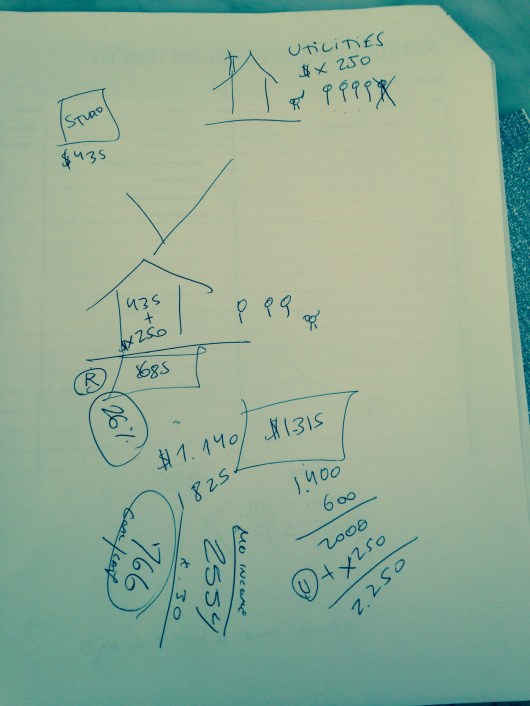 UTILITIES
$x 250
STUDO
$435
435
+
$x250
685
R
26%
$1.140
$1315
1825
1.400
600
2000
+ x250
2.250
MO INCOME
2554
x.30
766